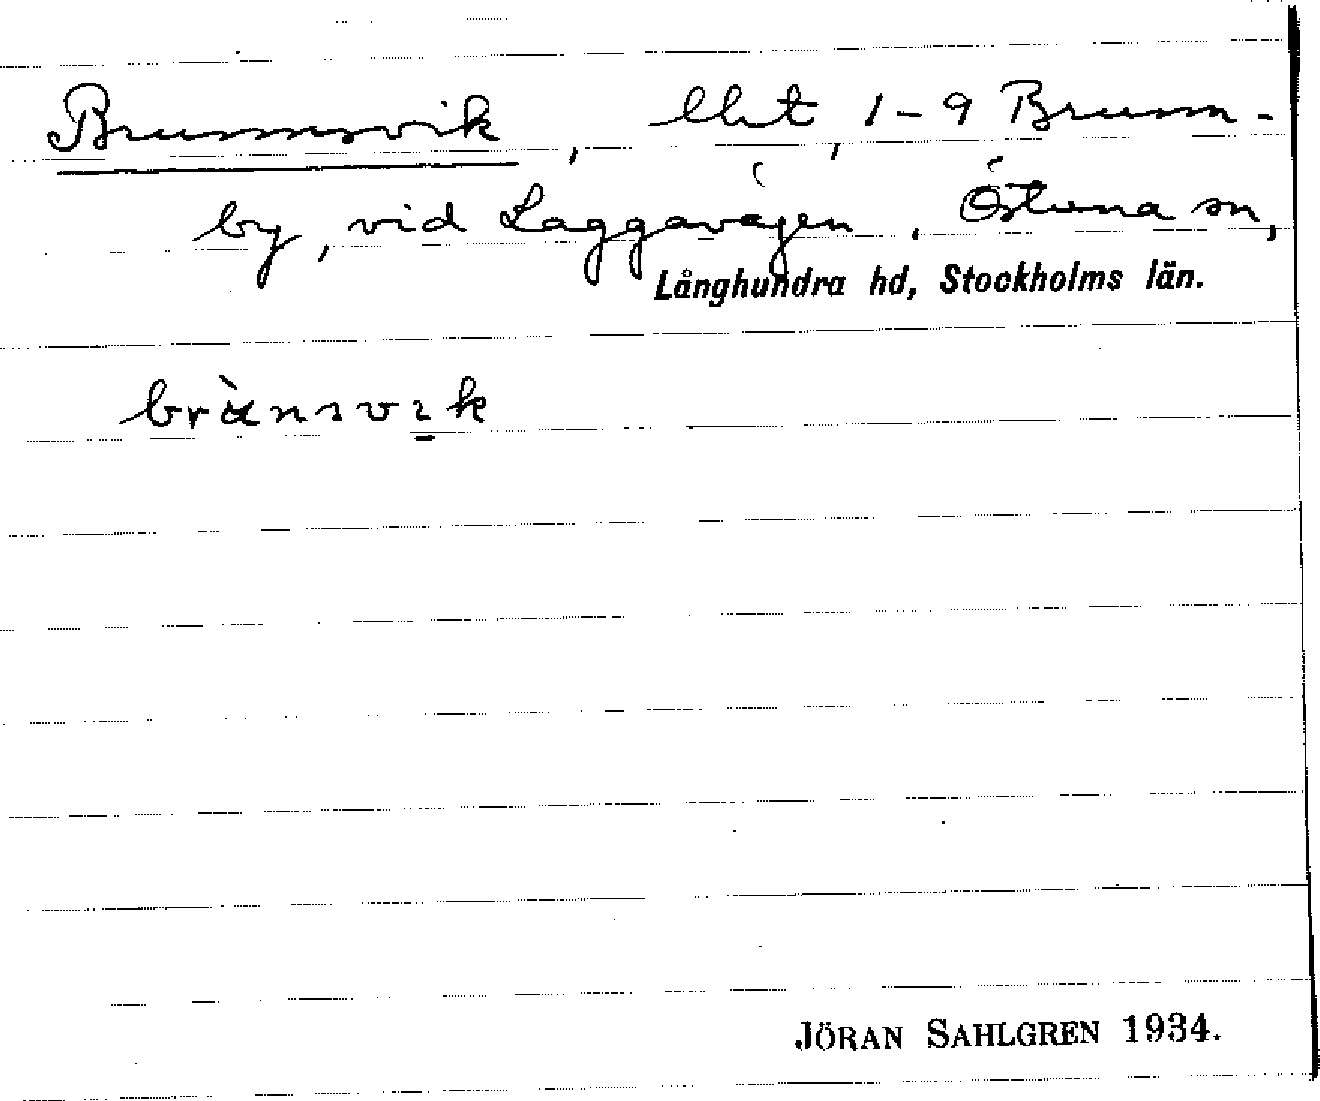 Brunnsvik, lht, 1-9 Brunn-
by, vid Laggavägen, Östuna sn,
Långhundra hd, Stockholms län.
brànsvik
JÖRAN SAHLGREN 1934.